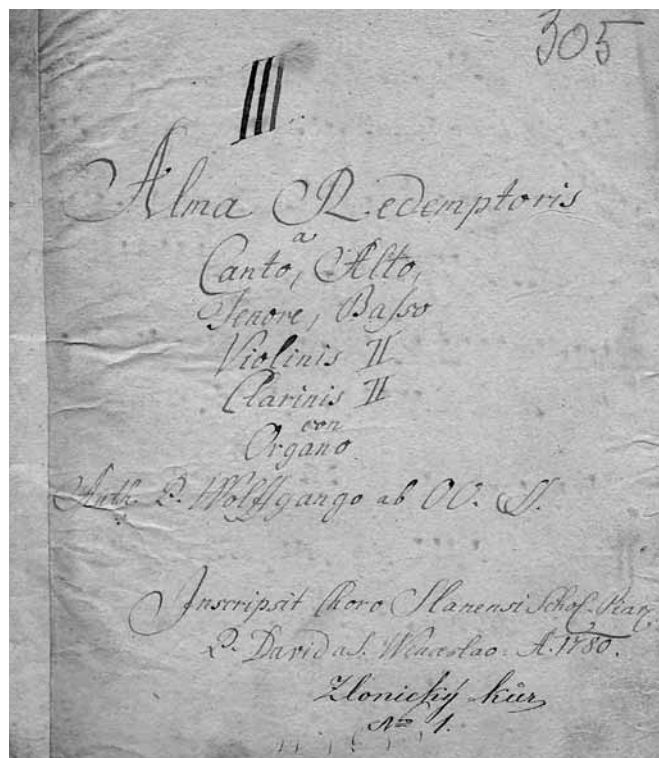 305
III
Alma Redemptoris
a
Canto, Alto,
Tenore, Baſso
Violinis II
Clarinis II
con
Organo
Auth. P. Wolffgango ab OO. SS.
Inscripsit Choro Slanensi Schol. Piar.
P. David a S. Wenceslao. A. 1780.
Zlonický kůr
No 1.